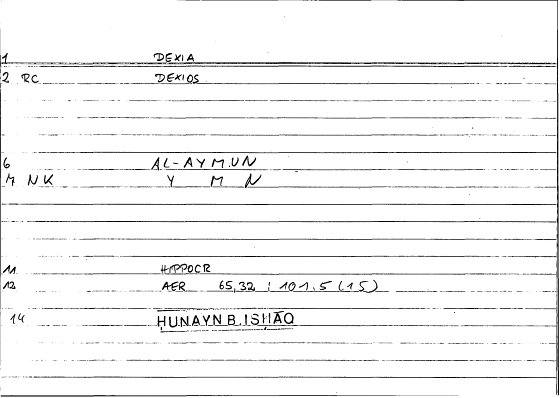 1 DEXIA
2 RC DEXIOS
6 AL-AYMUN
M NK Y M N
11 HIPPOCR
12 AER 65,32 : 101,5 (15)
14 ḤUNAYN B. ISḤĀQ